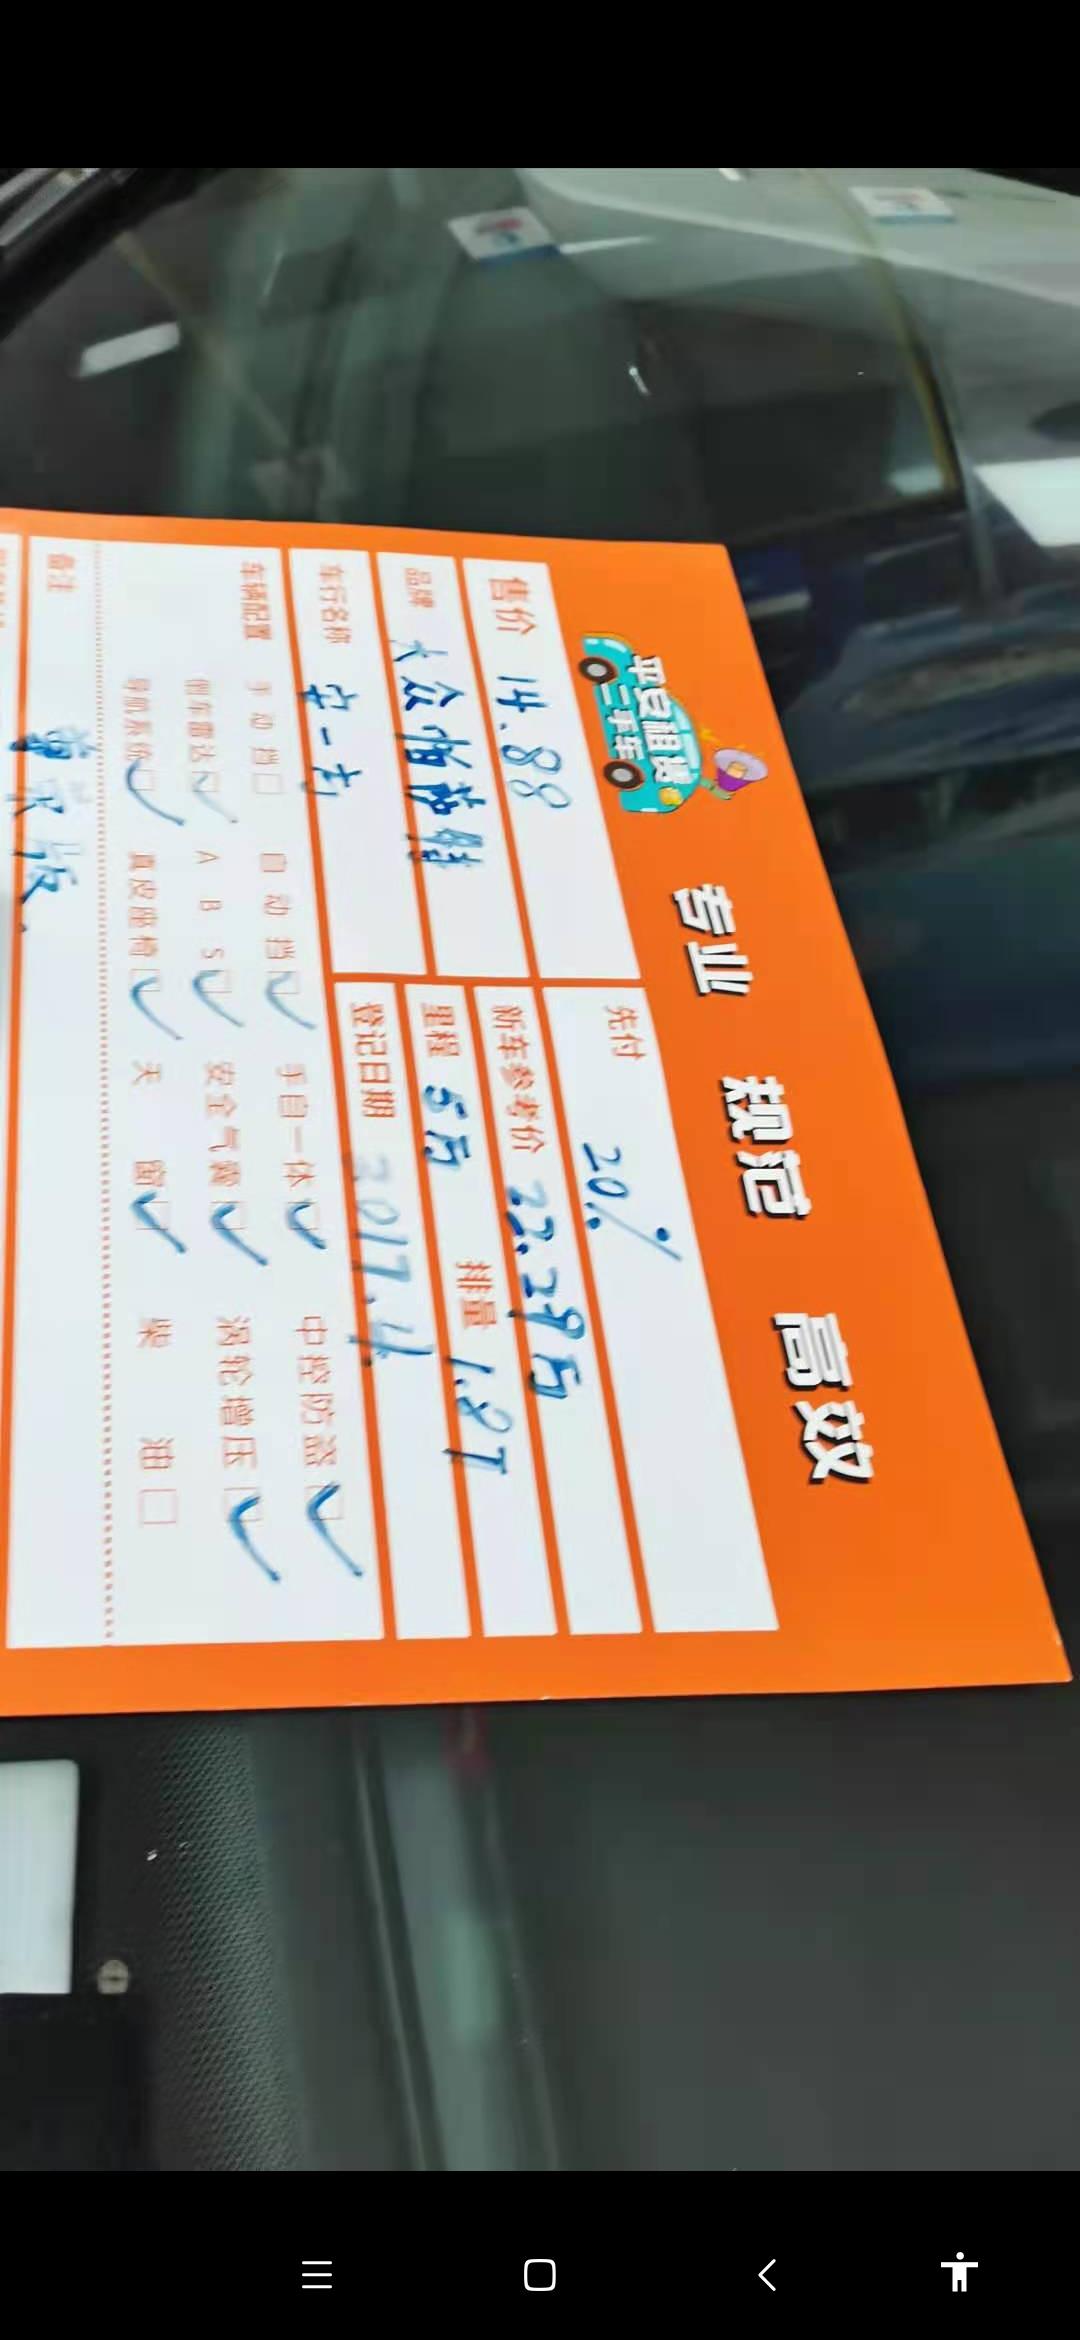 平安租赁
二手车
专业 规范 高效
售价 14.88
先付 20%
品牌 大众帕萨特
新车参考价 22.29万
里程 5万 排量 1.8T
车行名称
登记日期 2017.4
车辆配置 手动挡□ 自动挡☑ 手自一体☑ 中控防盗☑
倒车雷达☑ ABS☑ 安全气囊☑ 涡轮增压☑
导航系统☑ 真皮座椅☑ 天窗☑ 柴油□
备注 尊荣版.